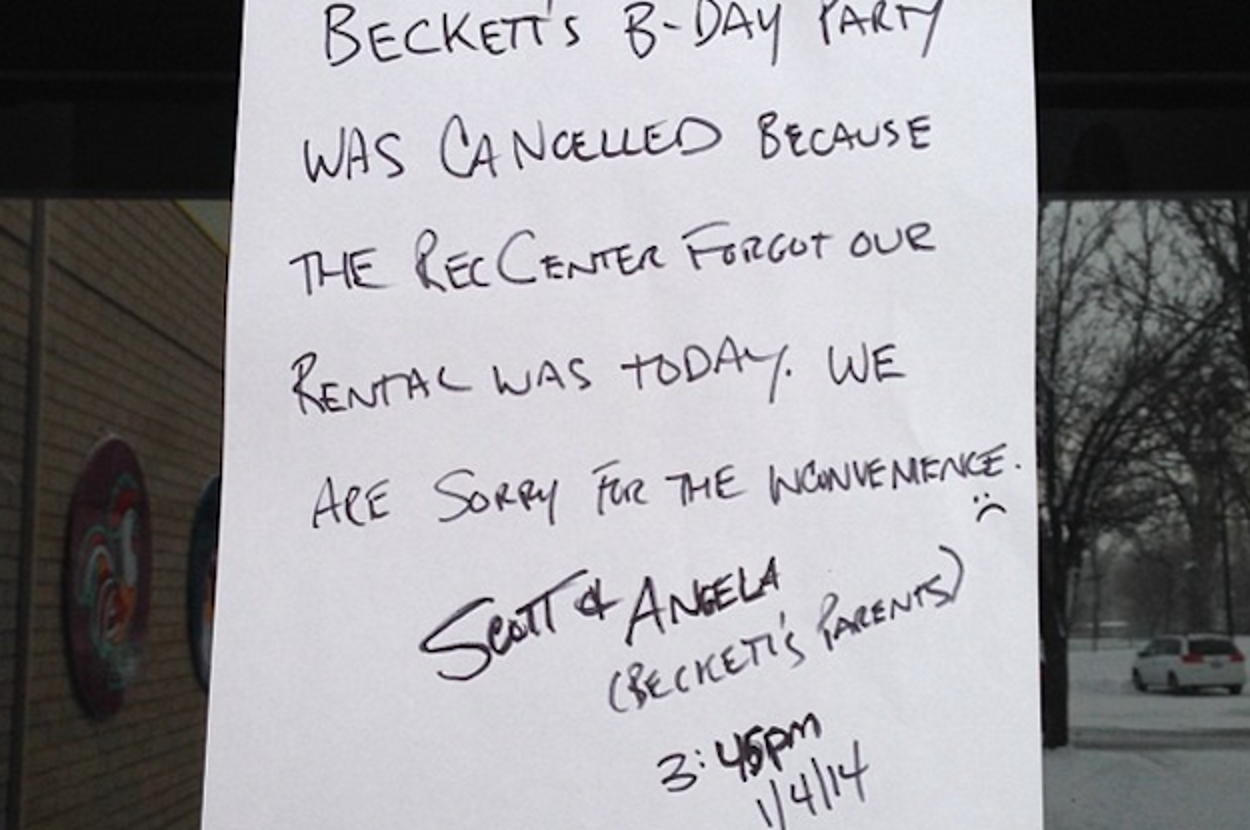 BECKETT'S B-DAY PARTY
WAS CANCELLED BECAUSE
THE REC CENTER FORGOT OUR
RENTAL WAS TODAY. WE
ARE SORRY FOR THE INCONVENIENCE.
:(
SCOTT & ANGELA
(BECKETT'S PARENTS)
3:45pm
1/4/14